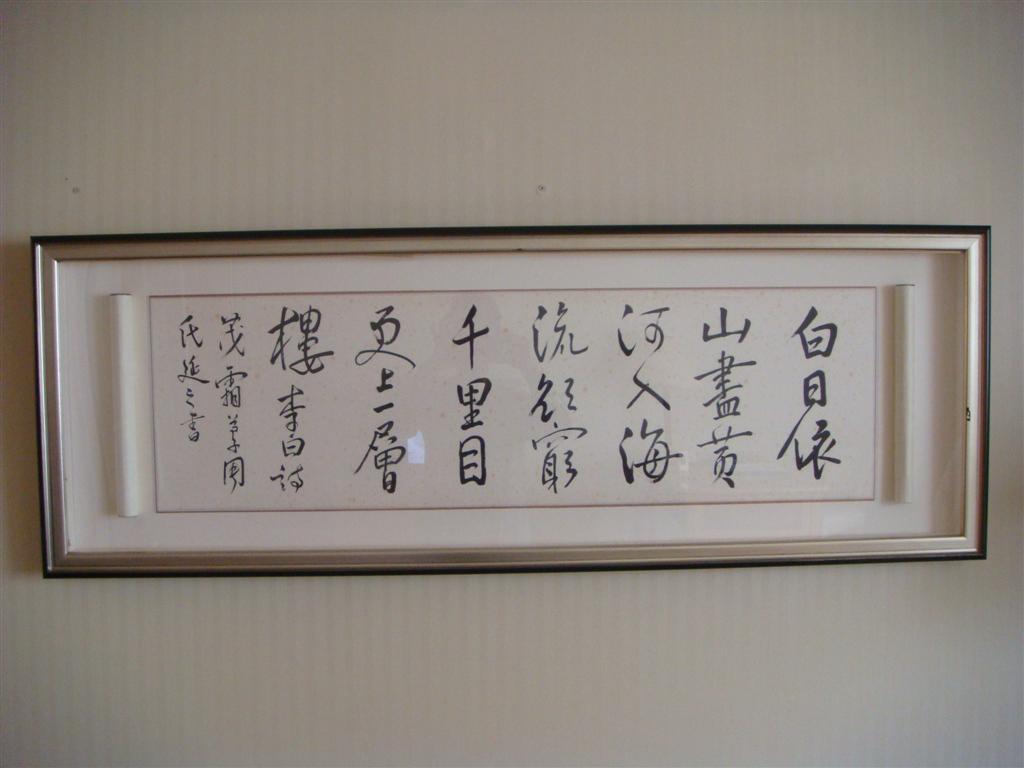 白日依
山盡黄
河入海
流欲窮
千里目
更上一層
樓 李白詩
茂霜草周
氏延之書